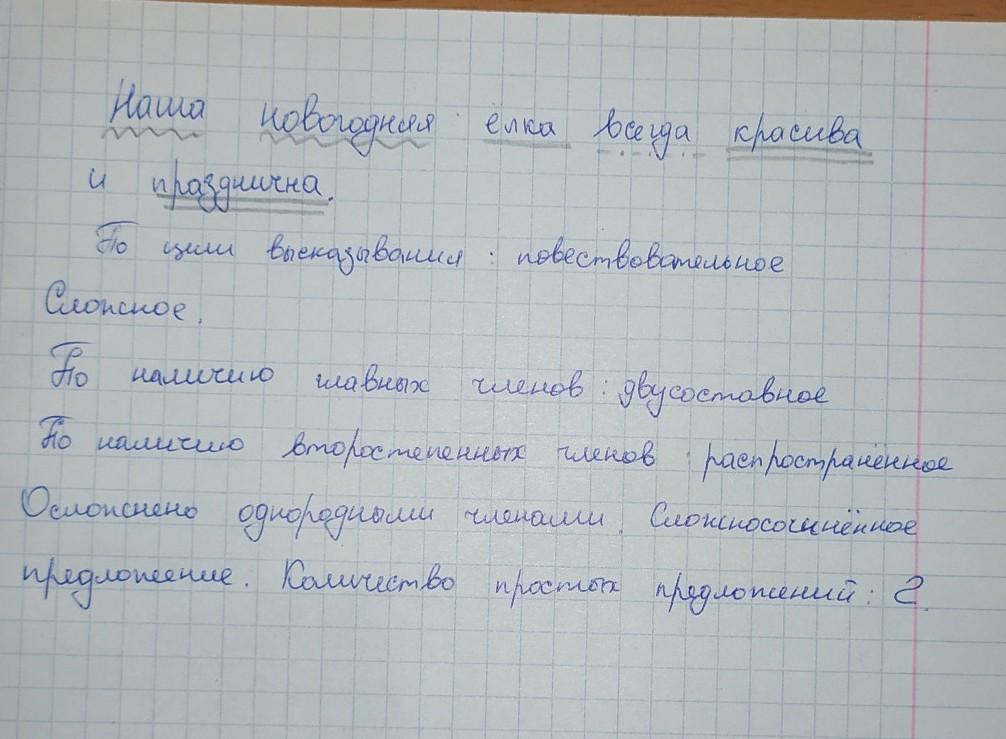 Наша новогодняя ёлка всегда красива
и празднична.
По цели высказывания: повествовательное
Сложное.
По наличию главных членов: двусоставное
По наличию второстепенных членов: распространённое
Осложнено однородными членами. Сложносочинённое
предложение. Количество простых предложений: 2.